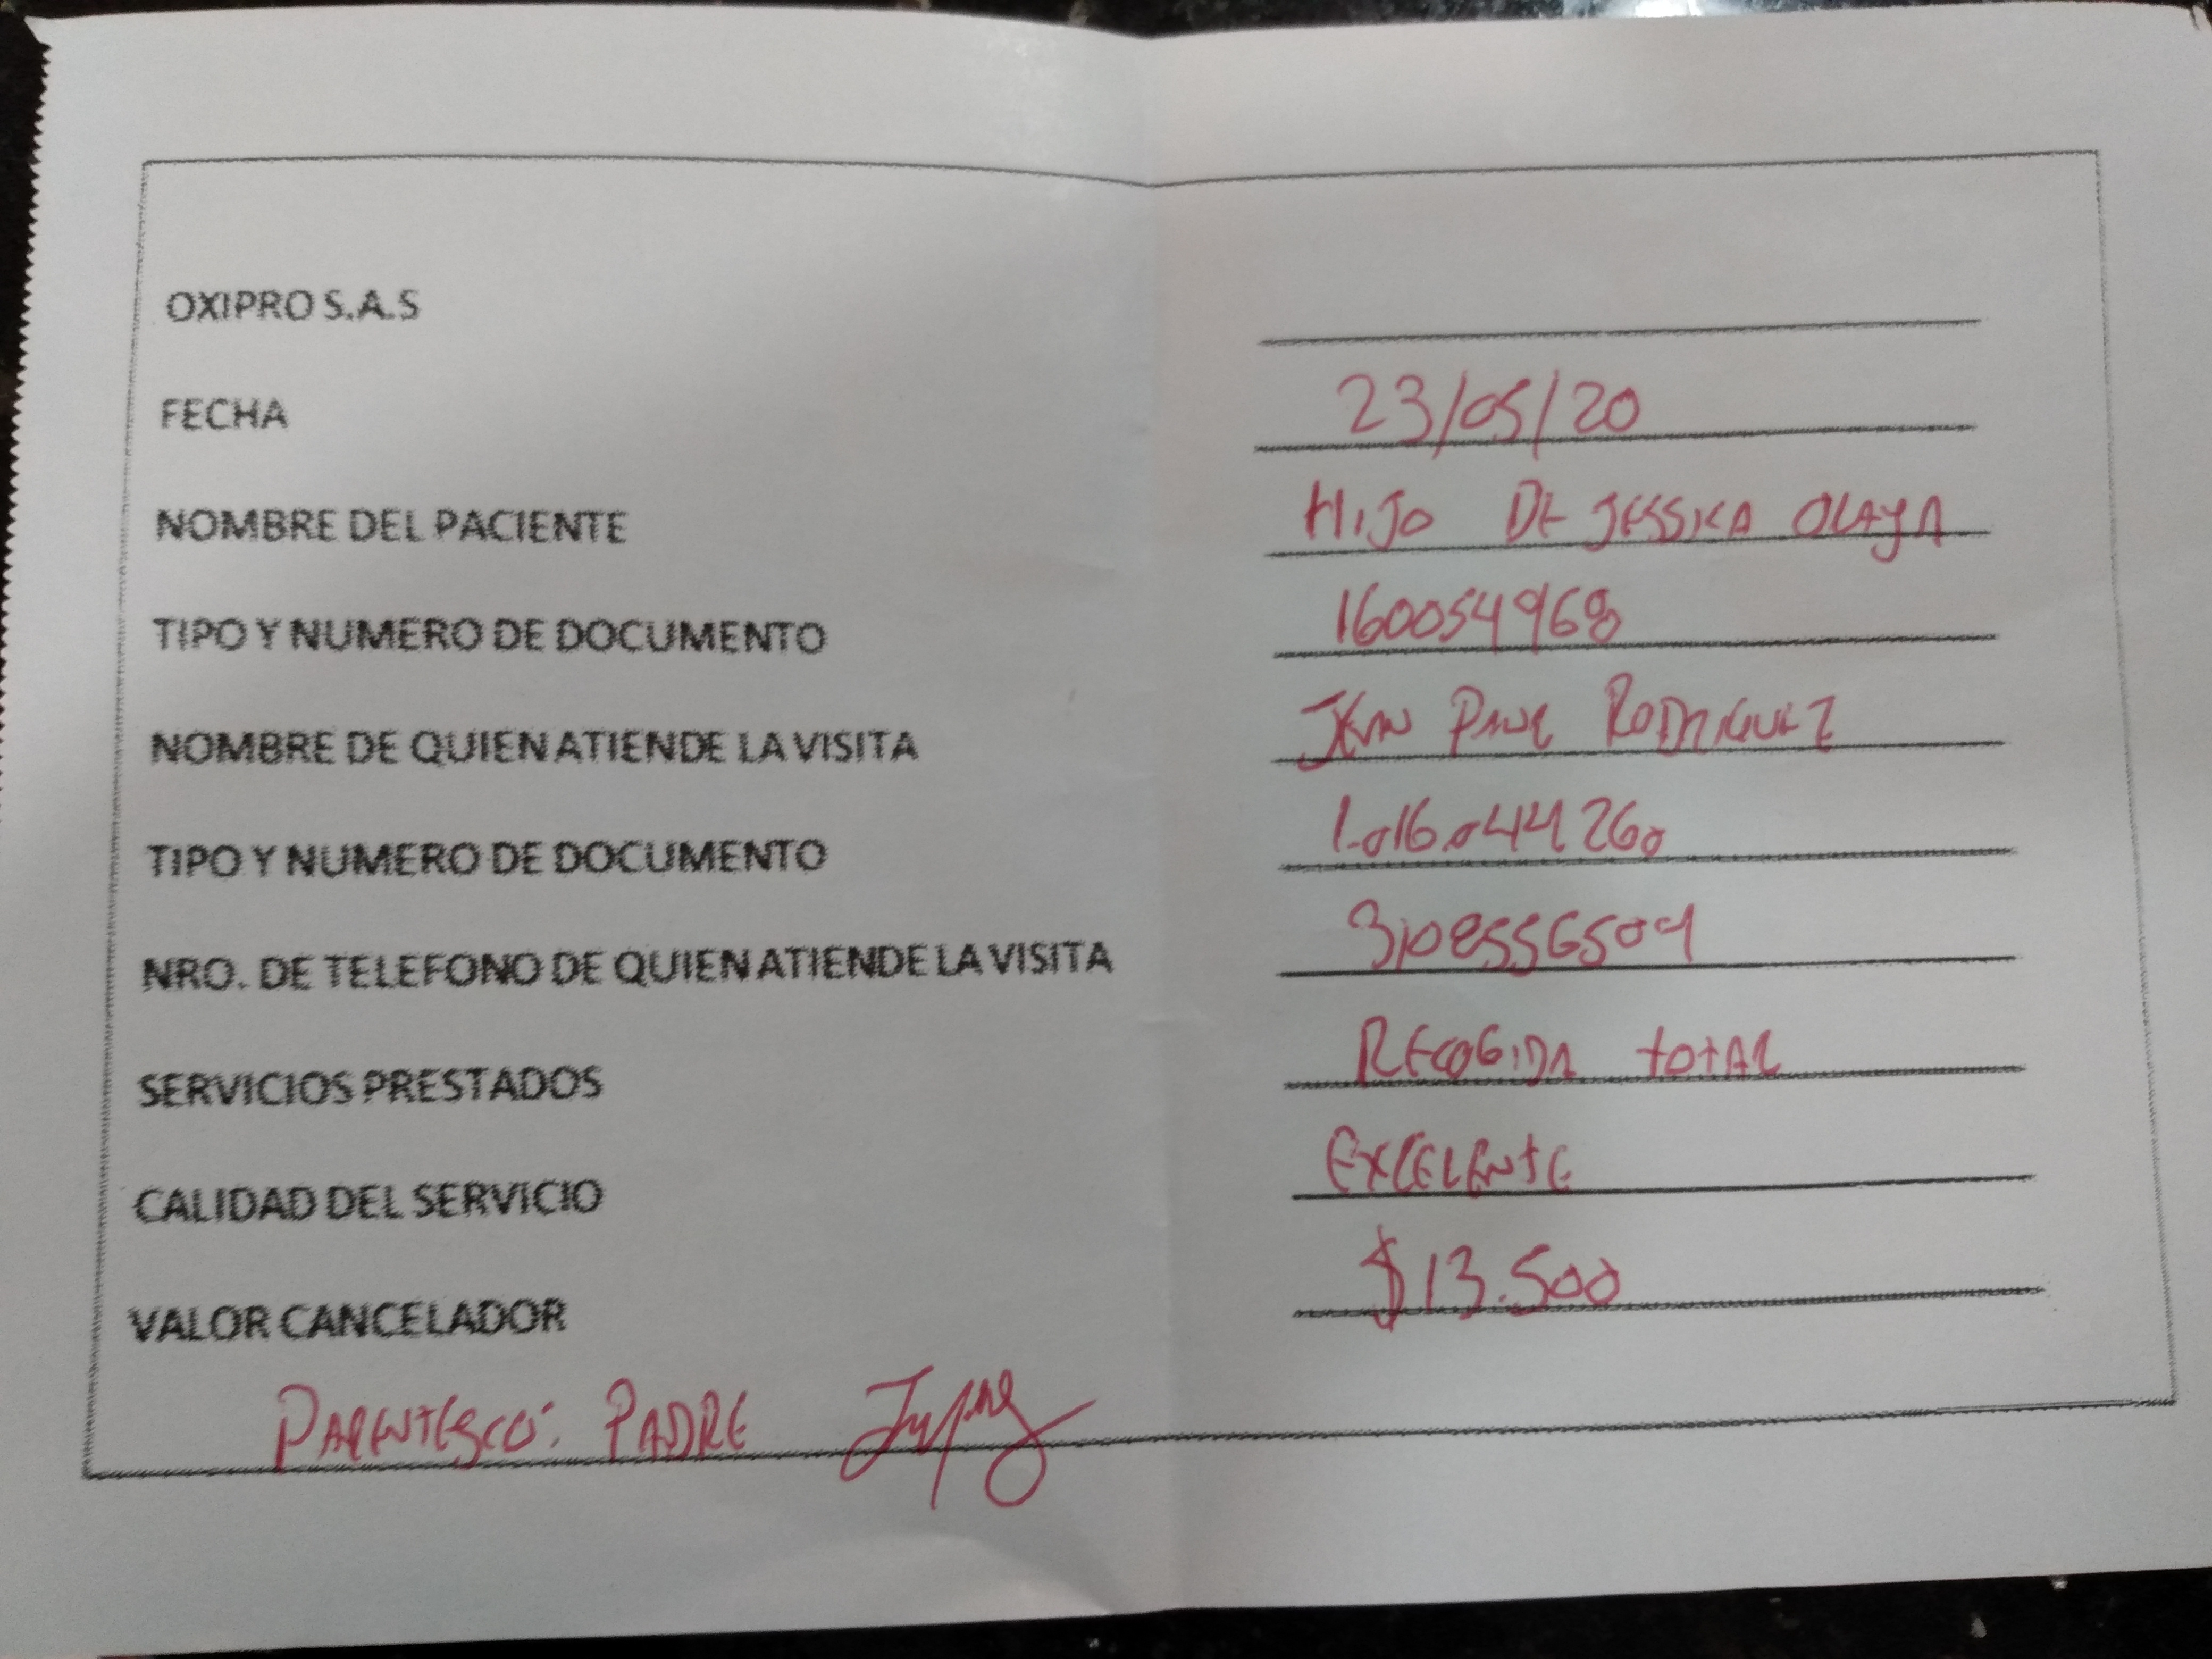 OXIPRO S.A.S
FECHA 23/05/20
NOMBRE DEL PACIENTE HIJO DE JESSICA OLAYA
TIPO Y NUMERO DE DOCUMENTO 1600054968
NOMBRE DE QUIEN ATIENDE LA VISITA JEAN PAUL RODRIGUEZ
TIPO Y NUMERO DE DOCUMENTO 1.016.044260
NRO. DE TELEFONO DE QUIEN ATIENDE LA VISITA 3108556504
SERVICIOS PRESTADOS RECOGIDA TOTAL
CALIDAD DEL SERVICIO EXCELENTE
VALOR CANCELADOR $13.500
PARENTESCO: PADRE